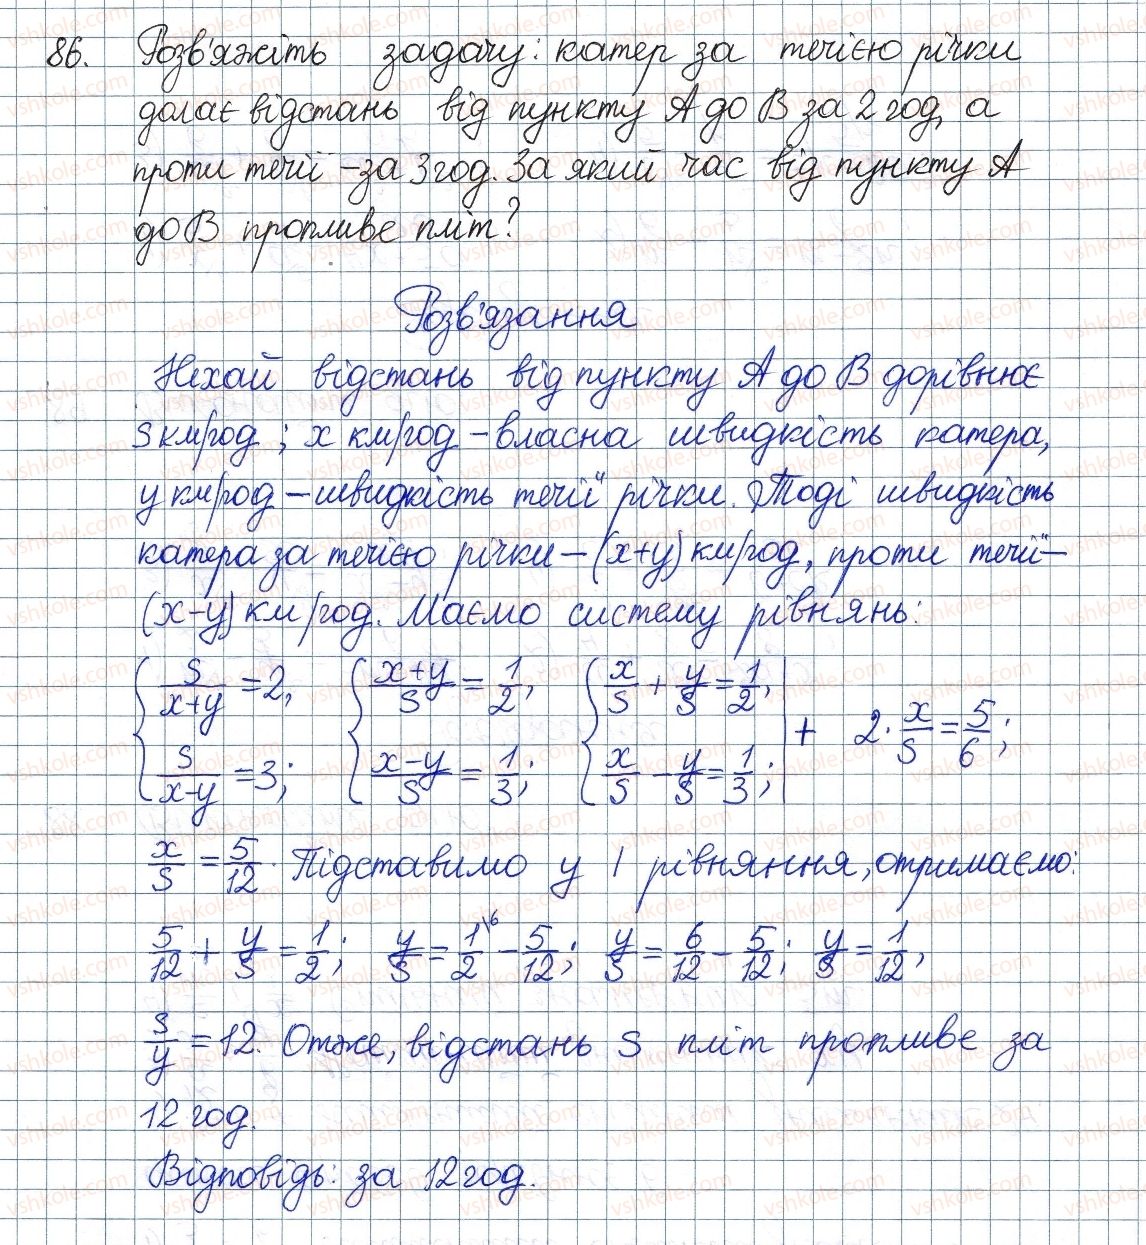 86. Розв'яжіть задачу: катер за течією річки
долає відстань від пункту А до В за 2 год, а
проти течії - за 3 год. За який час від пункту А
до В пропливе пліт?
Розв'язання
Нехай відстань від пункту А до В дорівнює
S км/год; x км/год - власна швидкість катера,
y км/год - швидкість течії річки. Тоді швидкість
катера за течією річки - (x+y) км/год, проти течії -
(x-y) км/год. Маємо систему рівнянь:
{ S/(x+y) = 2, { (x+y)/S = 1/2, { x/S + y/S = 1/2, | + 2 · x/S = 5/6;
S/(x-y) = 3; (x-y)/S = 1/3; x/S - y/S = 1/3; |
x/S = 5/12. Підставимо у 1 рівняння, отримаємо:
5/12 + y/S = 1/2; y/S = 1/2 \6 - 5/12; y/S = 6/12 - 5/12; y/S = 1/12,
S/y = 12. Отже, відстань S пліт пропливе за
12 год.
Відповідь: за 12 год.
vshkole.com